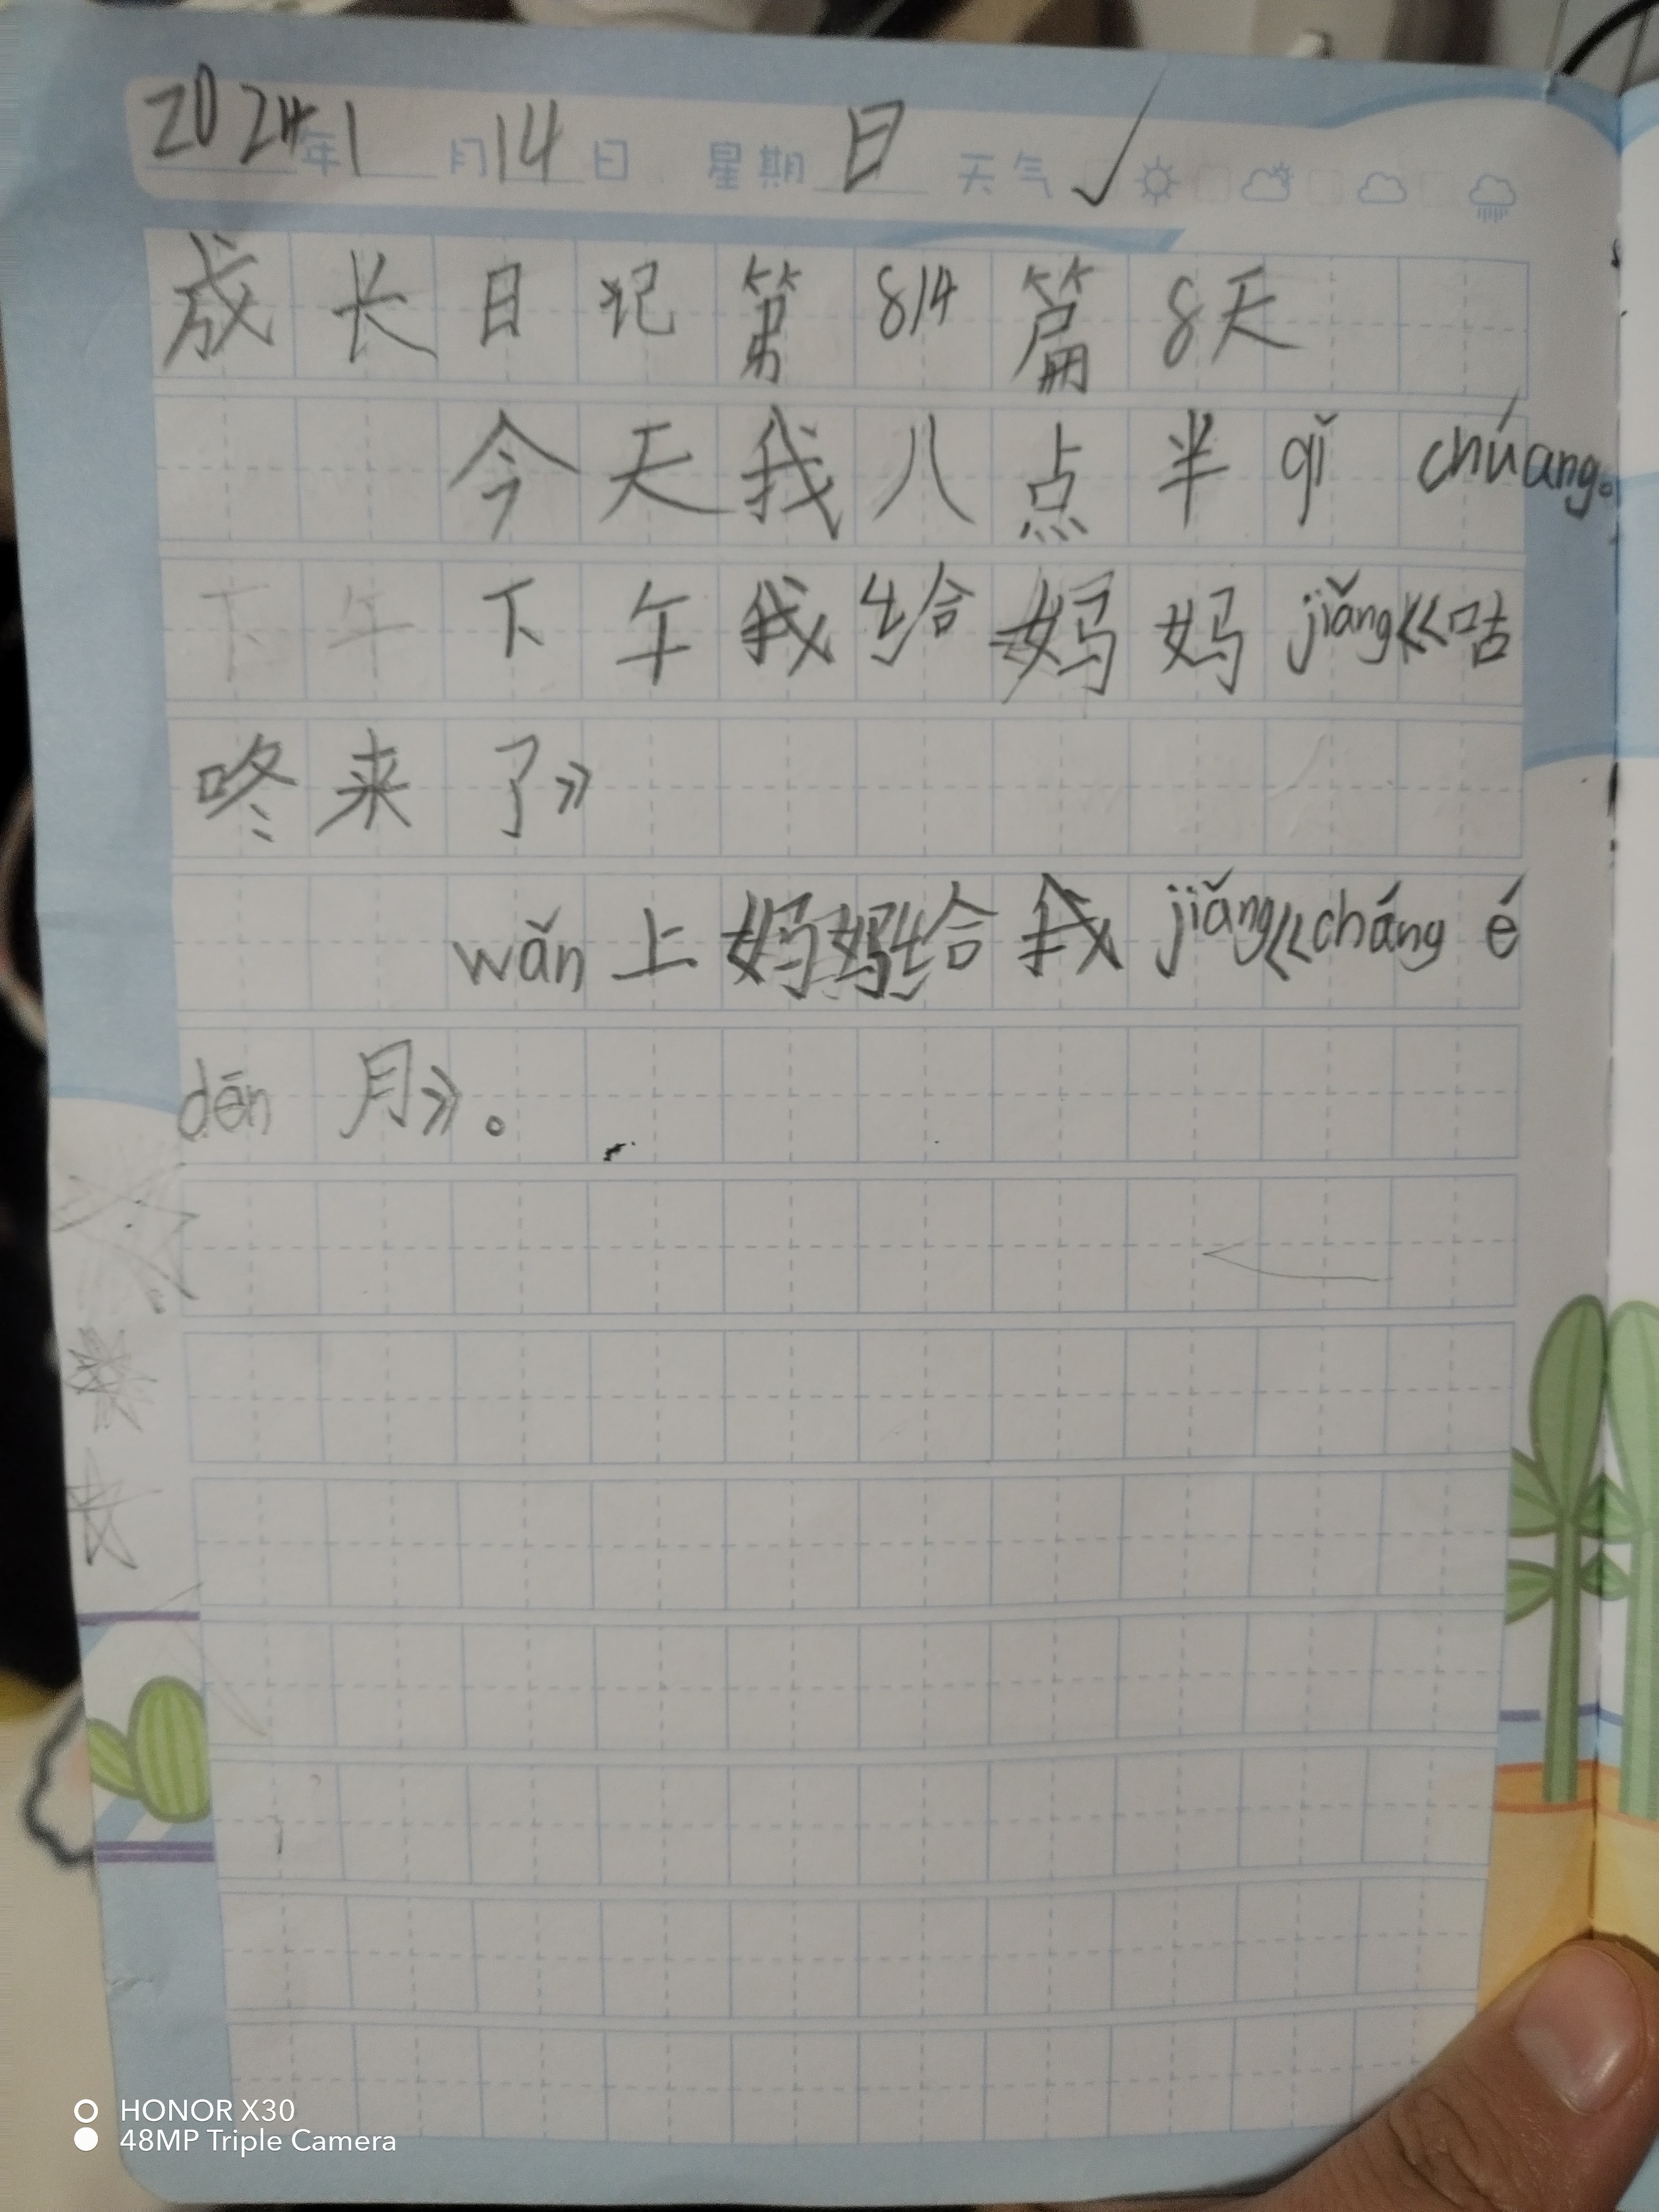 2024年1月14日 星期日 天气 ✓
成长日记第814篇8天
今天我八点半qǐ chúang。
下午下午我给妈妈jiǎng《咕
咚来了》
wǎn上妈妈给我jiǎng《cháng é
dēn月》。
HONOR X30
48MP Triple Camera